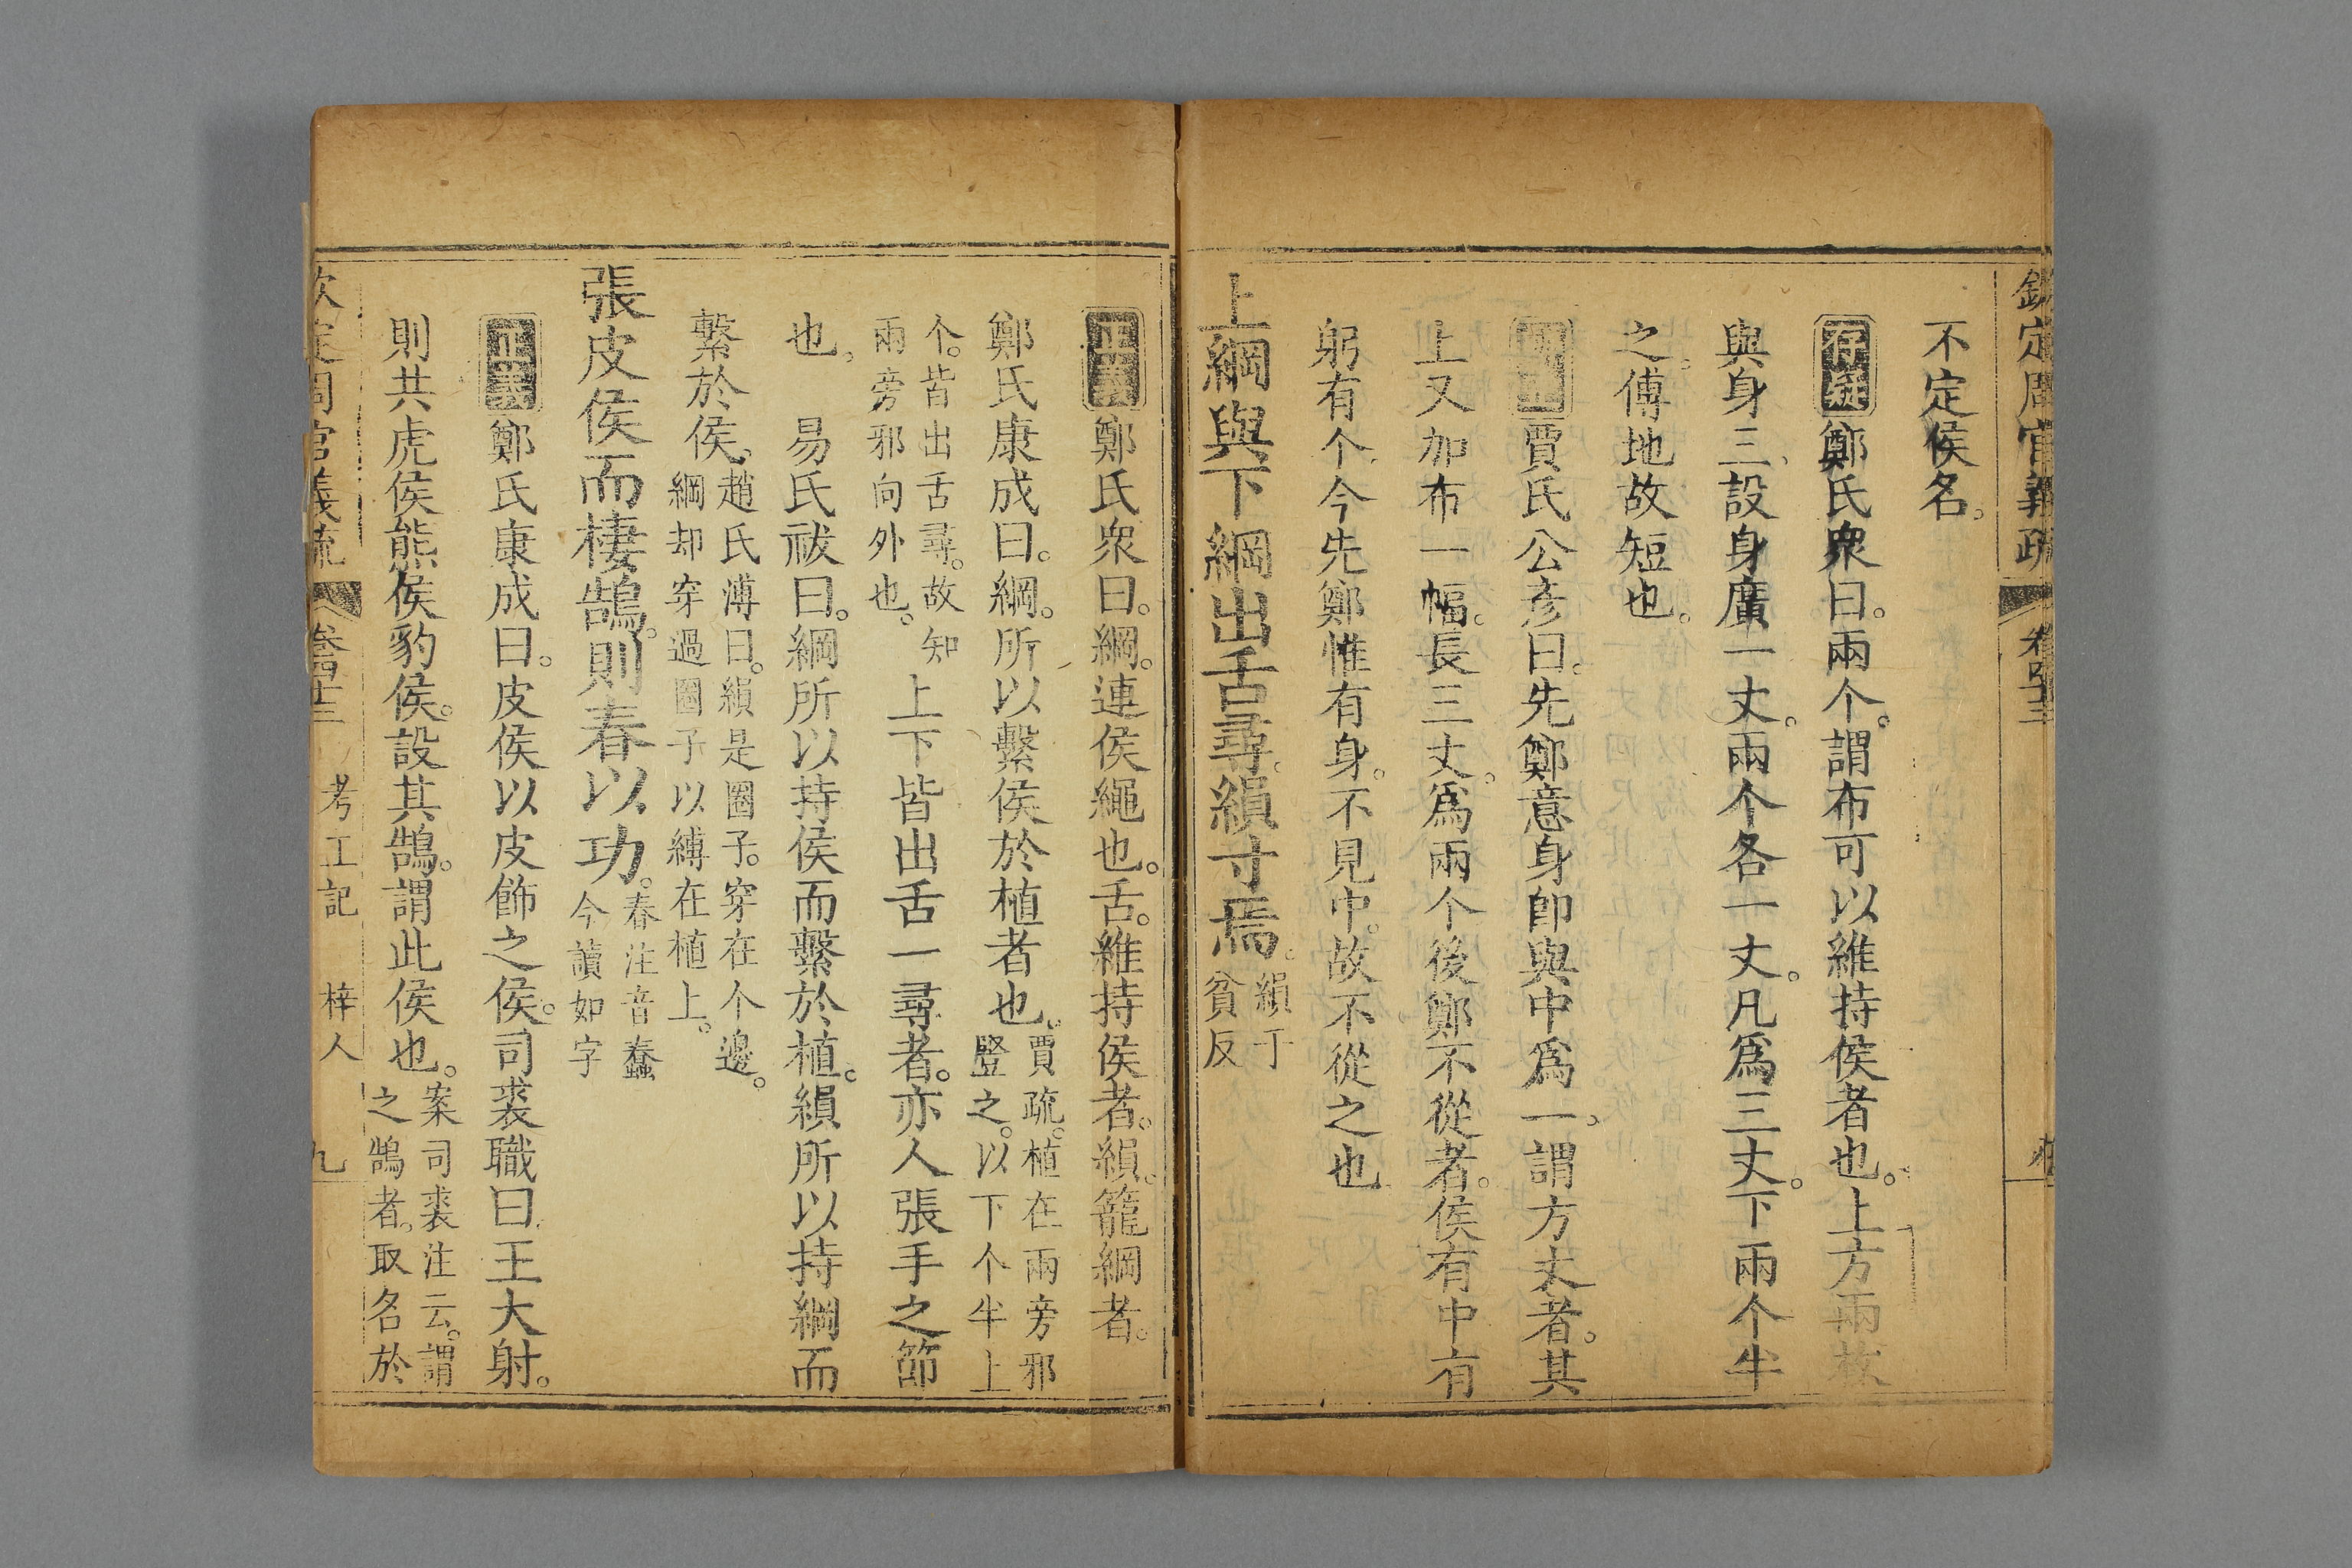 欽定周官義疏 卷四十三
不定侯名。
存疑鄭氏衆曰。兩个。謂布可以維持侯者也。上方兩枚
與身三、設身廣一丈。兩个各一丈。凡爲三丈。下兩个半
之。傅地故短也。
賈氏公彦曰。先鄭意身卽與中爲一、謂方丈者。其
上又加布一幅。長三丈。爲兩个後鄭不從者。侯有中有
躬有个、今先鄭惟有身。不見中。故不從之也
上綱與下綱出舌尋。縜寸焉。縜丁
貧反
正義鄭氏衆曰。綱。連侯繩也。舌。維持侯者。縜。籠綱者。
鄭氏康成曰。綱。所以繫侯於植者也。賈疏。植在兩旁邪
豎之。以下个半上
个。皆出舌尋。故知
兩旁邪向外也。 上下皆出舌一尋者。亦人張手之節
也。 易氏祓曰。綱所以持侯而繫於植。縜所以持綱而
繫於侯。趙氏溥曰。縜是圈子。穿在个邊。
綱却穿過圈子以縛在植上。
張皮侯而棲鵠。則春以功。春注音蠢
今讀如字
正義鄭氏康成曰。皮侯以皮飾之侯。司裘職曰王大射。
則共虎侯熊侯豹侯。設其鵠。謂此侯也。案司裘注云。謂
之鵠者。取名於
欽定周官義疏 卷四十三 考工記 梓人 九